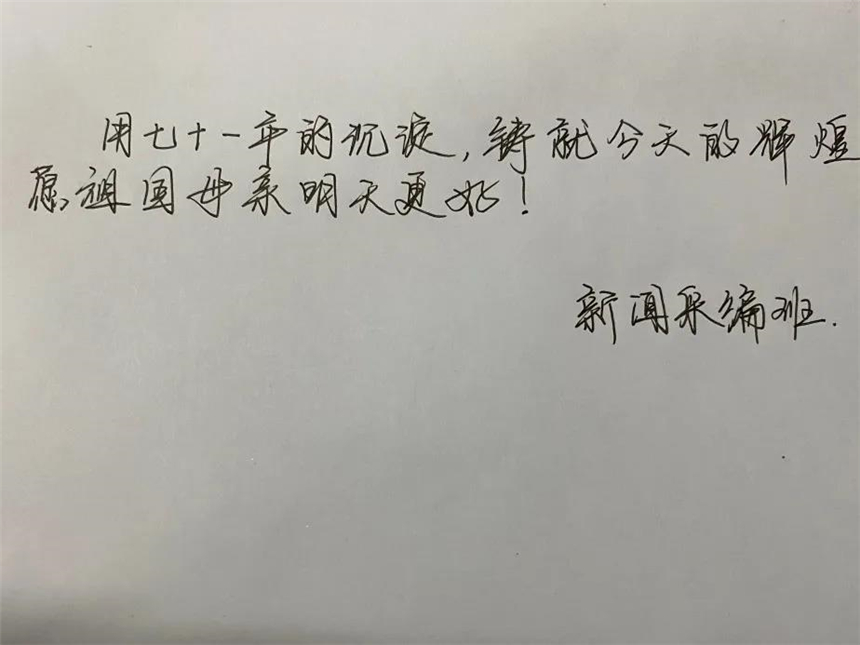 用七十一年的沉淀,铸就今天的辉煌
愿祖国母亲明天更好!
新闻采编班.